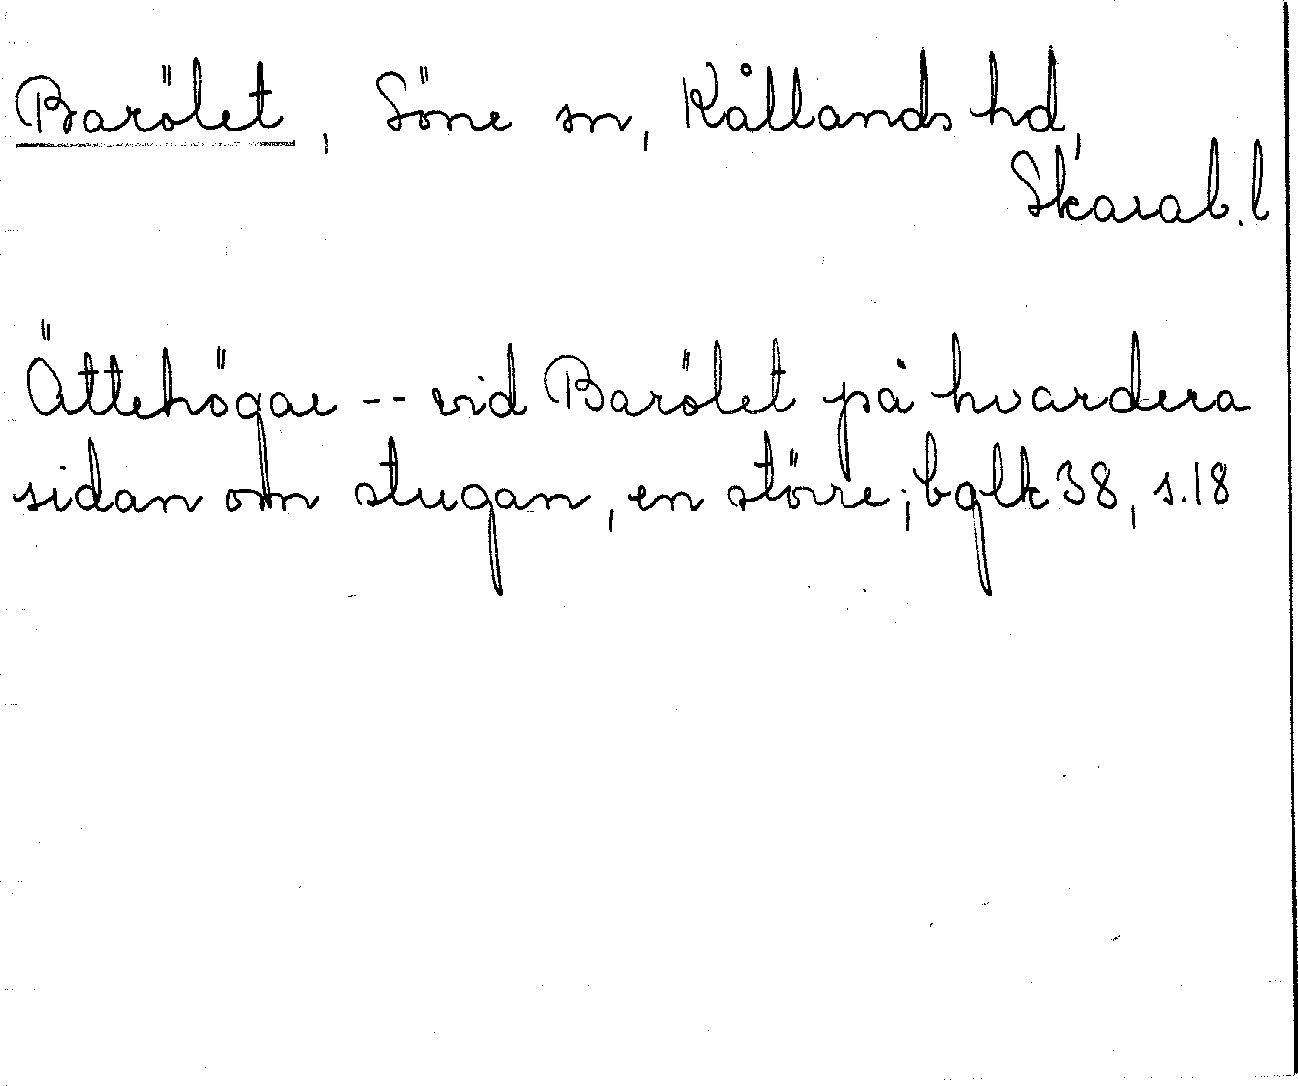 Barölet, Söne sn, Kållands hd,
Skarab. l
Ättehögar -- vid Barölet på hvardera
sidan om stugan, en större; bglk 38, s. 18